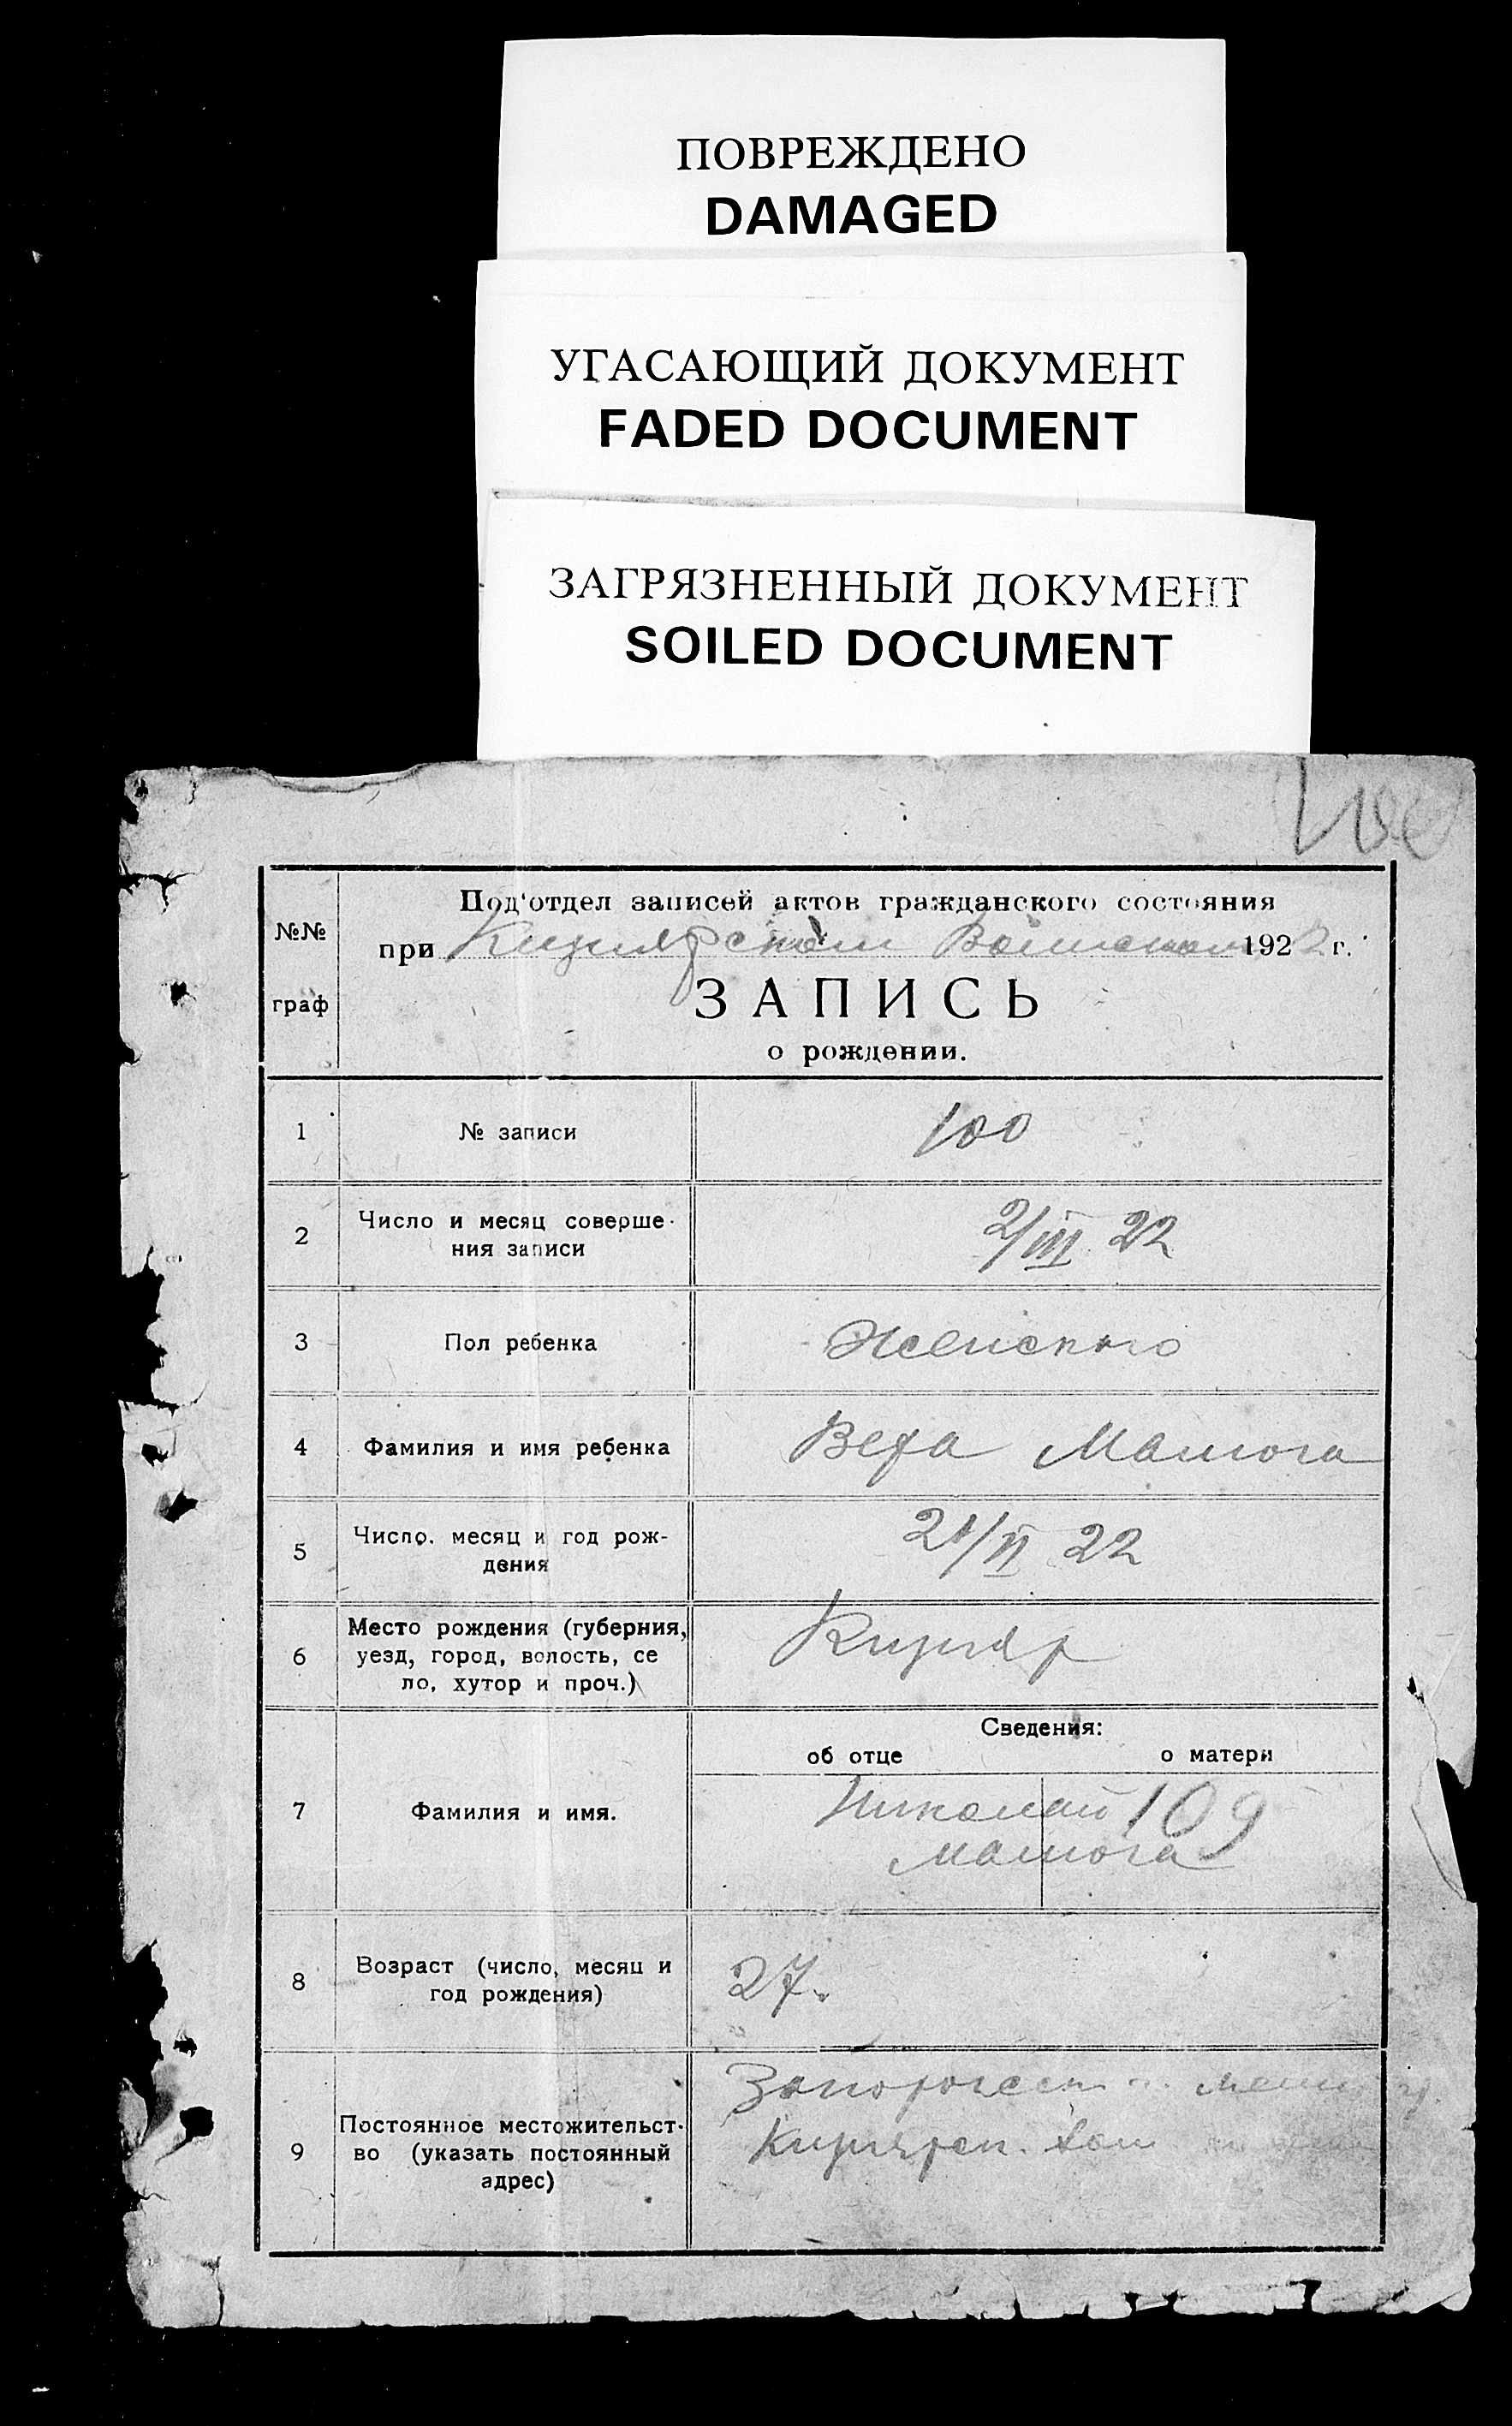 ПОВРЕЖДЕНО
DAMAGED
УГАСАЮЩИЙ ДОКУМЕНТ
FADED DOCUMENT
ЗАГРЯЗНЕННЫЙ ДОКУМЕНТ
SOILED DOCUMENT
№№
граф
Под'отдел записей актов гражданского состояния
при Кизиярском 1922 г.
ЗАПИСЬ
о рождении.
1 № записи 100
2 Число и месяц соверше-
ния записи 2/III 22
3 Пол ребенка Женского
4 Фамилия и имя ребенка Вера Малюга
5 Число, месяц и год рож-
дения 22
6 Место рождения (губерния,
уезд, город, волость, се
ло, хутор и проч.) Кизияр
Сведения:
об отце о матери
7 Фамилия и имя. Николай 109
Малюга
8 Возраст (число, месяц и
год рождения) 27.
9 Постоянное местожительст-
во (указать постоянный
адрес)
Кизиярск.